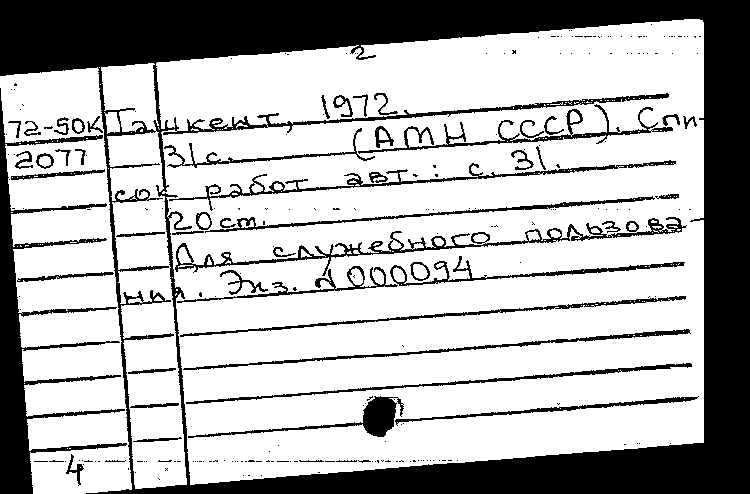 2
72-50К Ташкент, 1972.
2077 31с. (АМН СССР). Спи-
сок работ авт.: с. 31.
20 ст.
Для служебного пользова-
ния. Экз. №000094
4